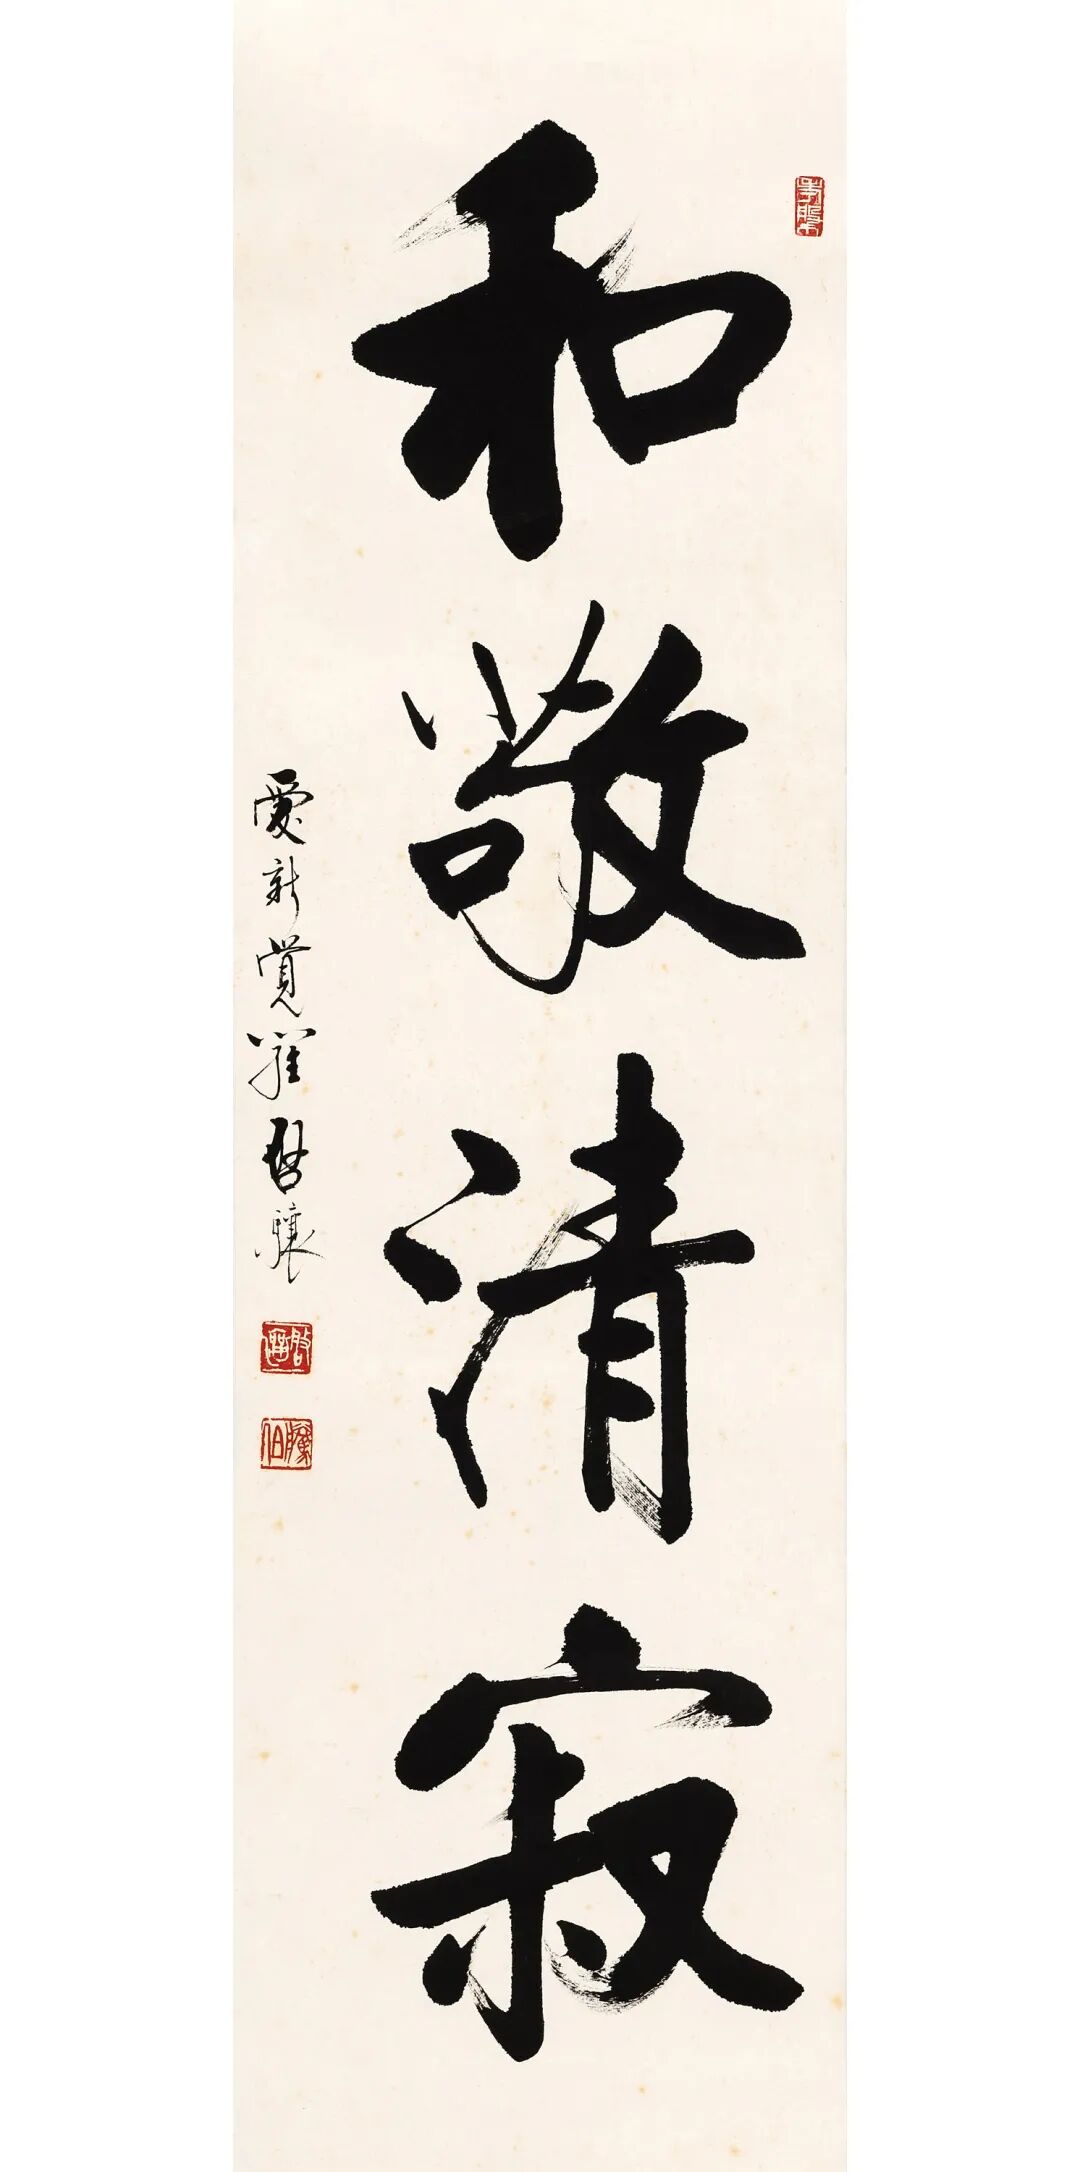 和敬清寂
愛新覺羅啓驤